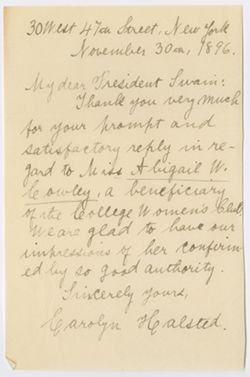 30 West 47th Street, New York
November 30th, 1896.
My dear President Swain:
Thank you very much
for your prompt and
satisfactory reply in re-
gard to Miss Abigail W.
Cowley, a beneficiary
of the College Women's Club.
We are glad to have our
impressions of her confirm-
ed by so good authority.
Sincerely yours,
Carolyn Halsted.